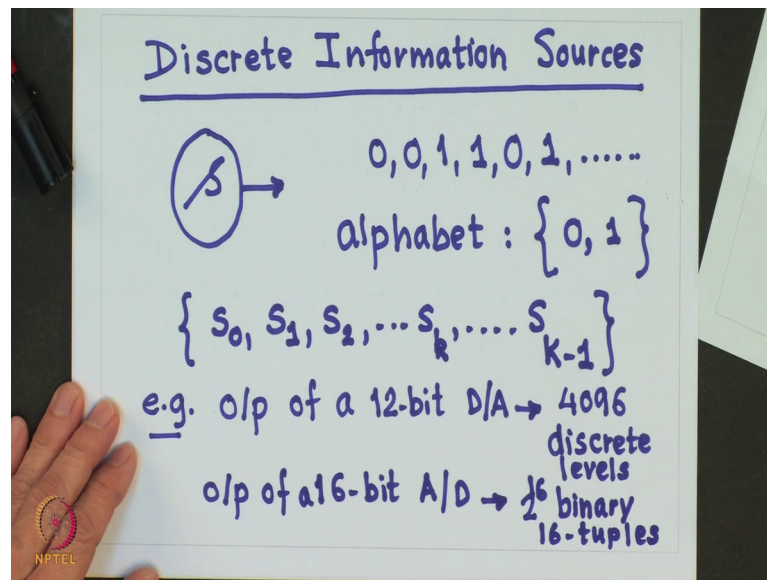 Discrete Information Sources
S
0, 0, 1, 1, 0, 1, ......
alphabet : { 0, 1 }
{ S0, S1, S2, ... Sk, .... SK-1 }
e.g. o/p of a 12-bit D/A → 4096
discrete
levels
o/p of a 16-bit A/D → 2^16 binary
16-tuples
NPTEL